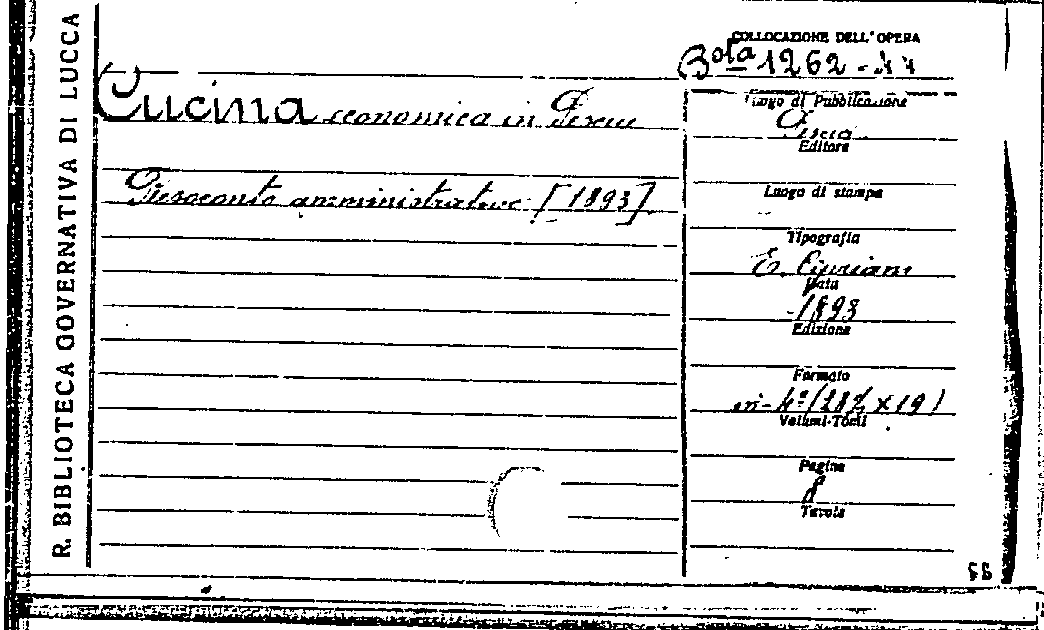 R. BIBLIOTECA GOVERNATIVA DI LUCCA
COLLOCAZIONE DELL'OPERA
Bta 1262
Cucina economica in Pescia
Resoconto amministrativo [1893]
Luogo di Pubblicazione
Pescia
Editore
Luogo di stampa
Tipografia
E. Cipriani
Data
1893
Edizione
Formato
in-4° (28½ x 19)
Volumi-Tomi
Pagine
8
Tavole